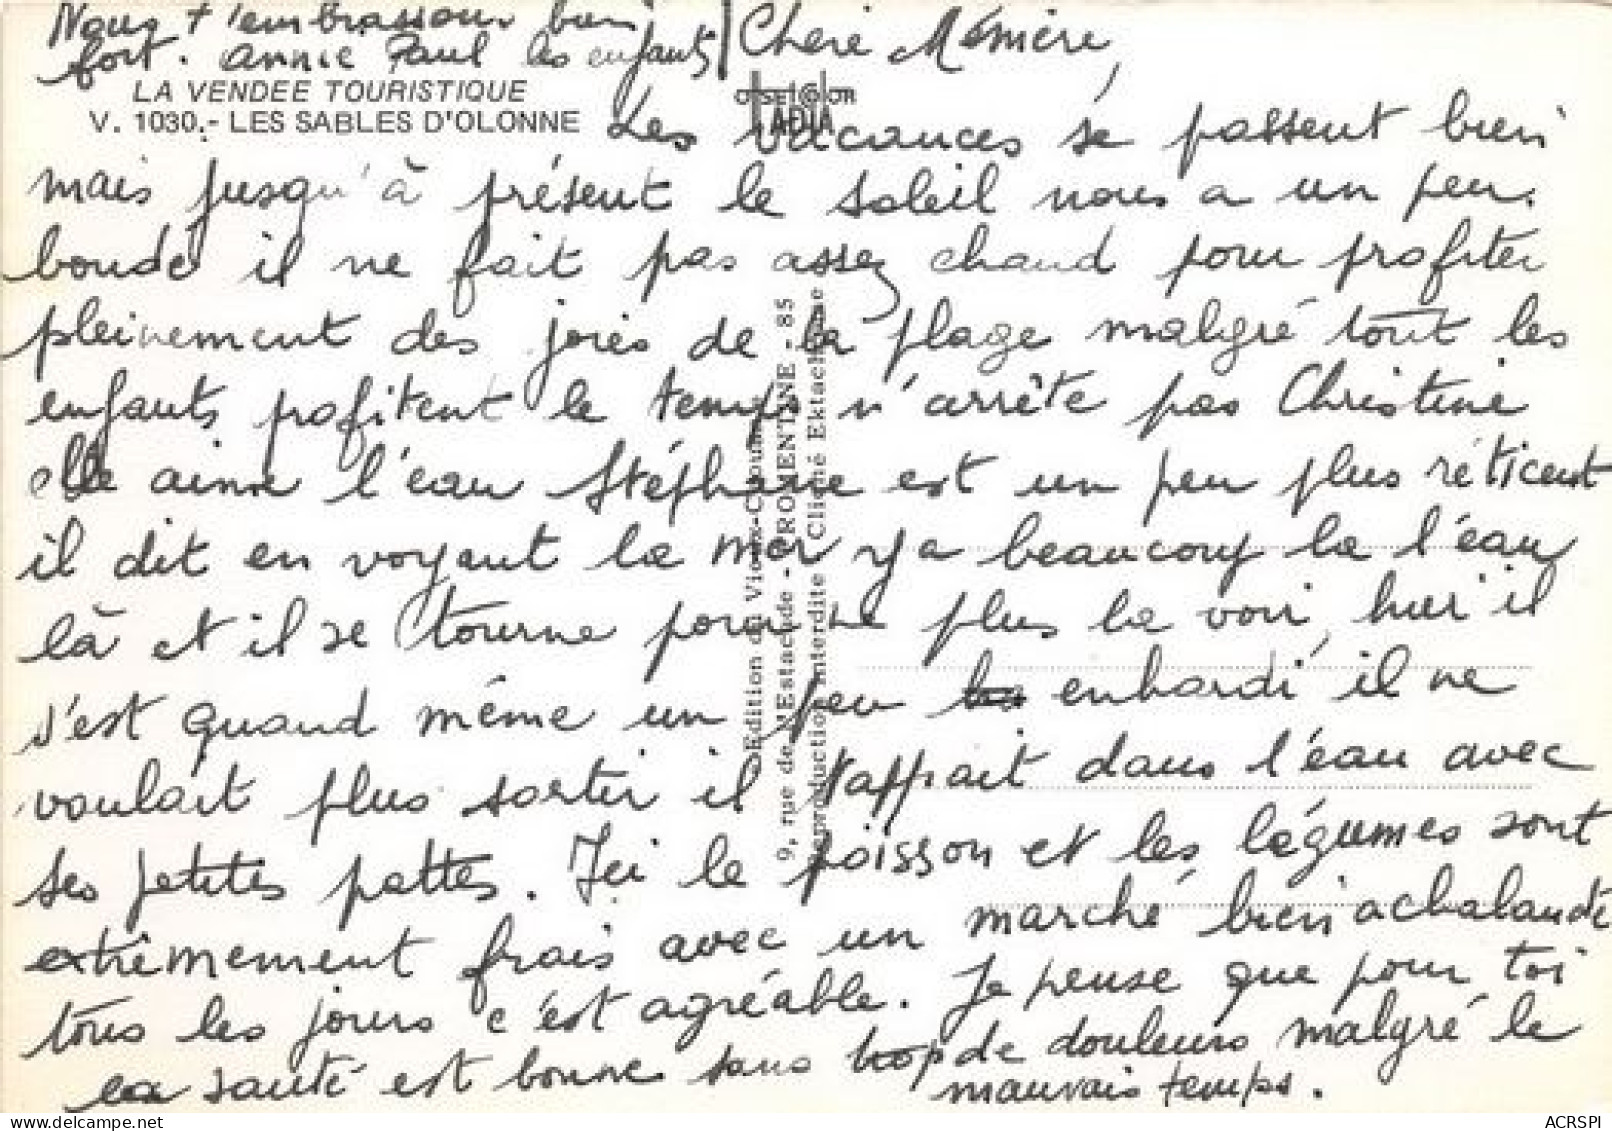 Chère Mémère,
Les vacances se passent bien
mais jusqu'à présent le soleil nous a un peu
boudé il ne fait pas assez chaud pour profiter
pleinement des joies de la plage malgré tout les
enfants profitent le temps n'arrête pas Christine
elle aime l'eau Stéphane est un peu plus réticent
il dit en voyant la mer y a beaucoup la l'eau
là et il se tourne pour ne plus la voir, hier il
s'est quand même un peu enhardi il ne
voulait plus sortir il tappait dans l'eau avec
ses petites pattes. Ici le poisson et les légumes sont
extrêmement frais avec un marché bien achalandé
tous les jours c'est agréable. Je pense que pour toi
la santé est bonne sans trop de douleurs malgré le
mauvais temps.
Nous t'embrassons bien
fort. Annie Paul les enfants
LA VENDEE TOURISTIQUE
V. 1030.- LES SABLES D'OLONNE
Edition du Vieux-Chouan
9, rue de l'Estacade - FROMENTINE - 85
Reproduction interdite Cliché Ektachrome
ACRSPI